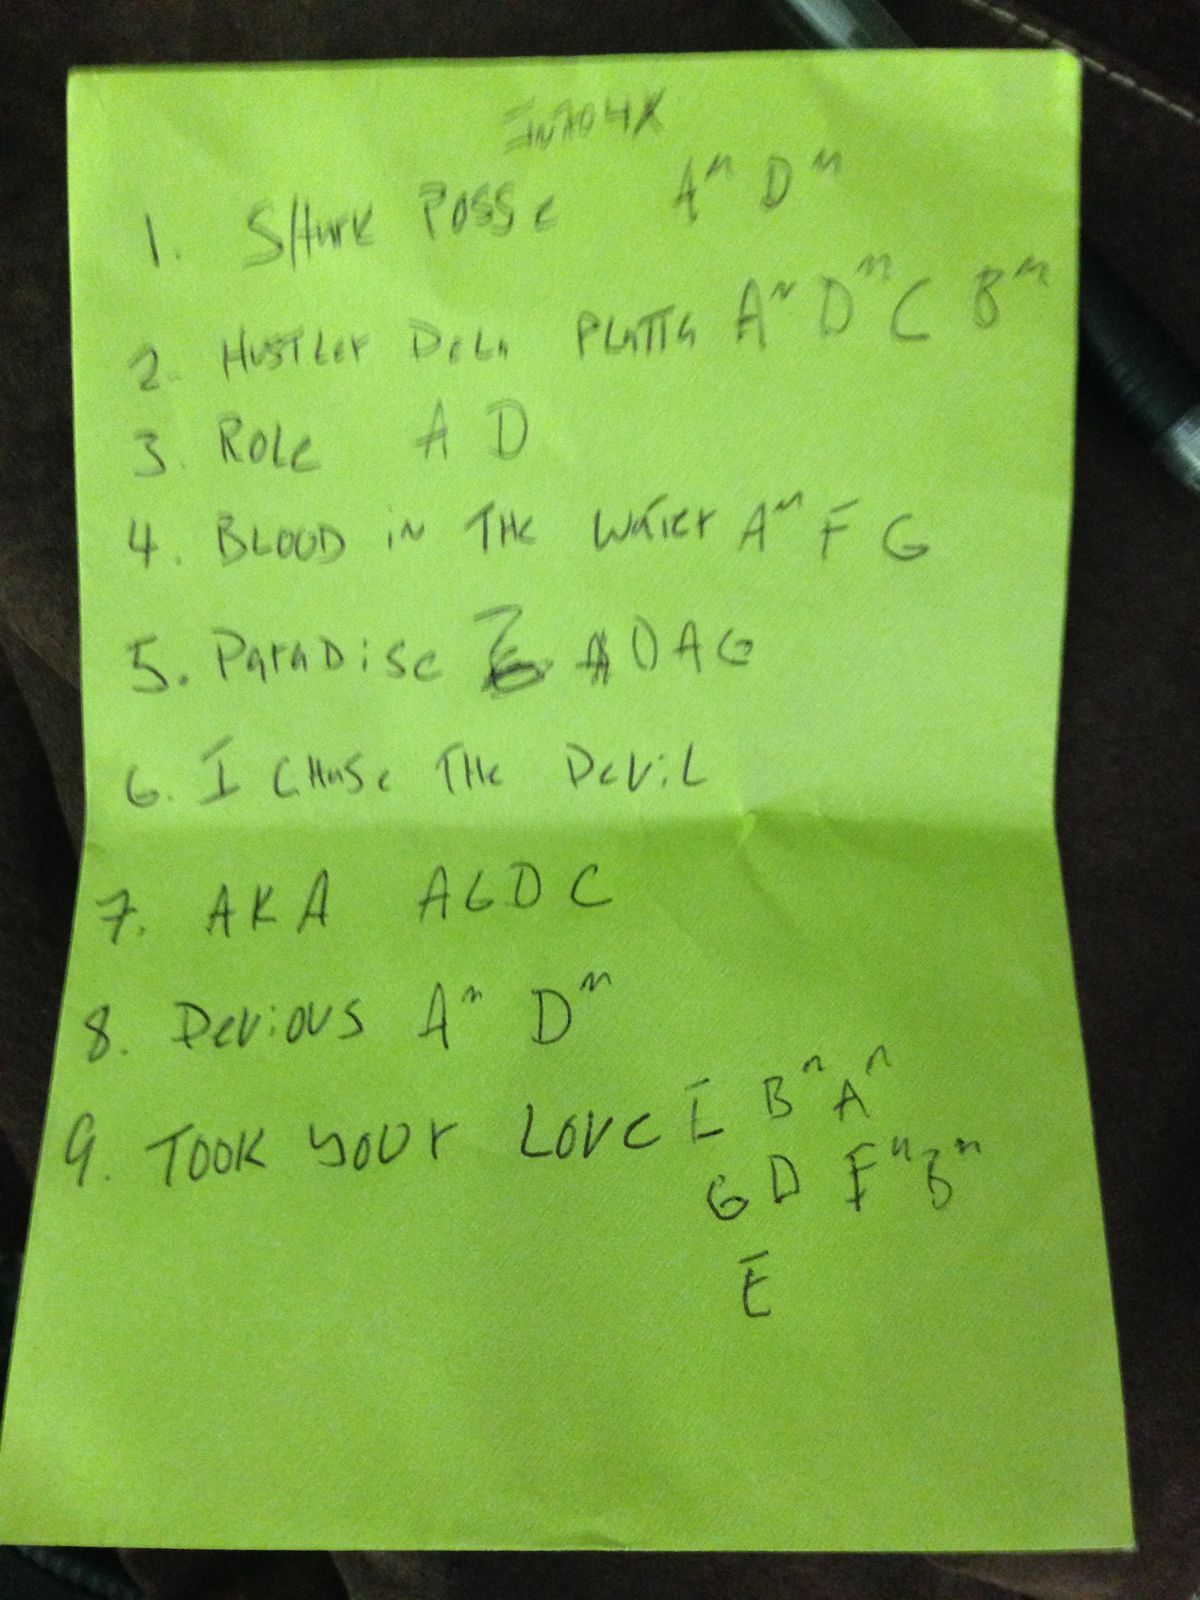 1. Shark Posse Am Dm
2. Hustler Dela Platta Am Dm C Bm
3. Role A D
4. Blood in The Water Am F G
5. Paradise A D A G
6. I Chase The Devil
7. AKA A G D C
8. Devious Am Dm
9. Took your Love E Bm Am
G D Fm Bm
E